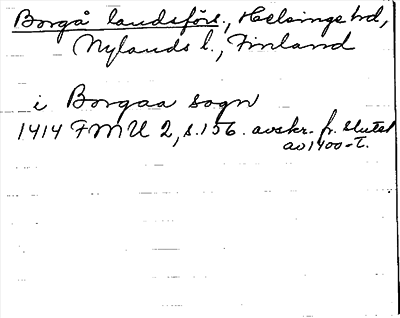 Borgå landsförs., Helsinge hd,
Nylands l., Finland
i Borgaa sogn
1414 FMU 2, s. 156. avskr. fr. slutet
av 1400-t.